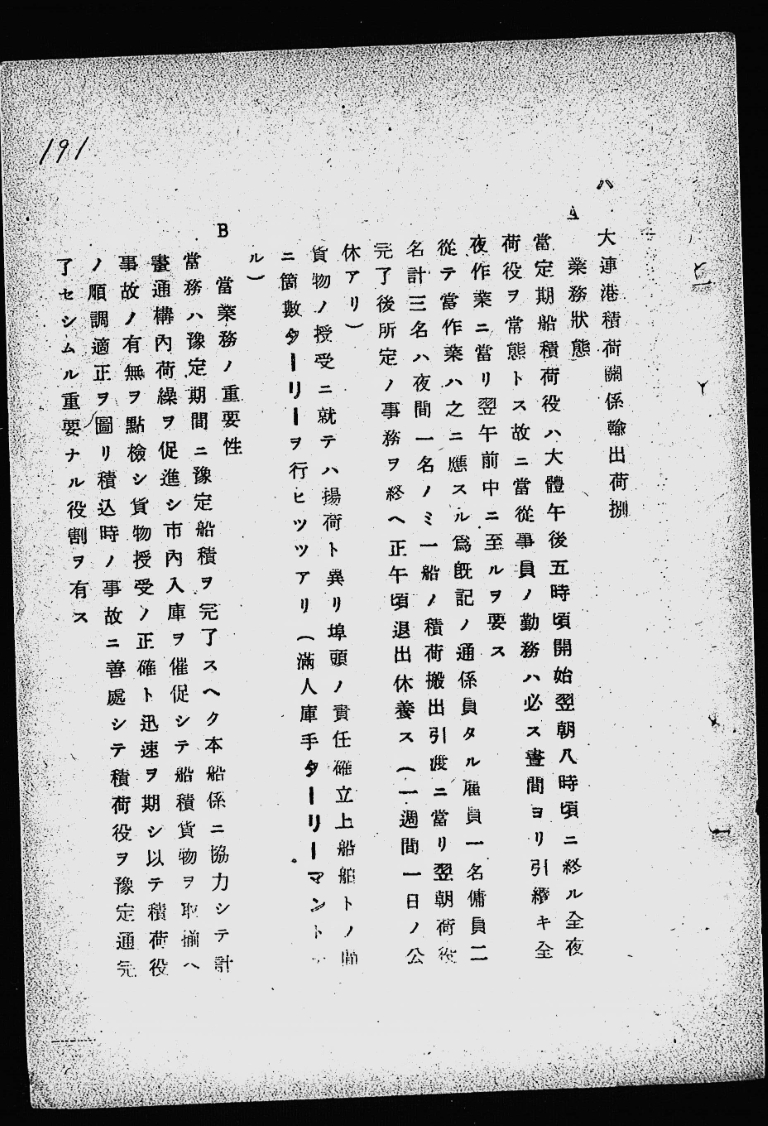 191
ハ、大連港積荷關係輸出荷捌
A 業務狀態
當定期船積荷役ハ大體午後五時頃開始翌朝八時頃ニ終ル全夜
荷役ヲ常態トス故ニ當從事員ノ勤務ハ必ス晝間ヨリ引續キ全
夜作業ニ當リ翌午前中ニ至ルヲ要ス
從テ當作業ハ之ニ應スル爲既記ノ通係員タル雇員一名傭員二
名計三名ハ夜間一名ノミ一船ノ積荷搬出引渡ニ當リ翌朝荷役
完了後所定ノ事務ヲ終ヘ正午頃退出休養ス(一週間一日ノ公
休アリ)
貨物ノ授受ニ就テハ揚荷ト異リ埠頭ノ責任確立上船舶トノ間
ニ箇數ターリーヲ行ヒツツアリ(滿人庫手ターリーマント
ル)
B 當業務ノ重要性
當務ハ豫定期間ニ豫定船積ヲ完了スヘク本船係ニ協力シテ計
畫通構內荷繰ヲ促進シ市內入庫ヲ催促シテ船積貨物ヲ取揃ヘ
事故ノ有無ヲ點檢シ貨物授受ノ正確ト迅速ヲ期シ以テ積荷役
ノ順調適正ヲ圖リ積込時ノ事故ニ善處シテ積荷役ヲ豫定通完
了セシムル重要ナル役割ヲ有ス